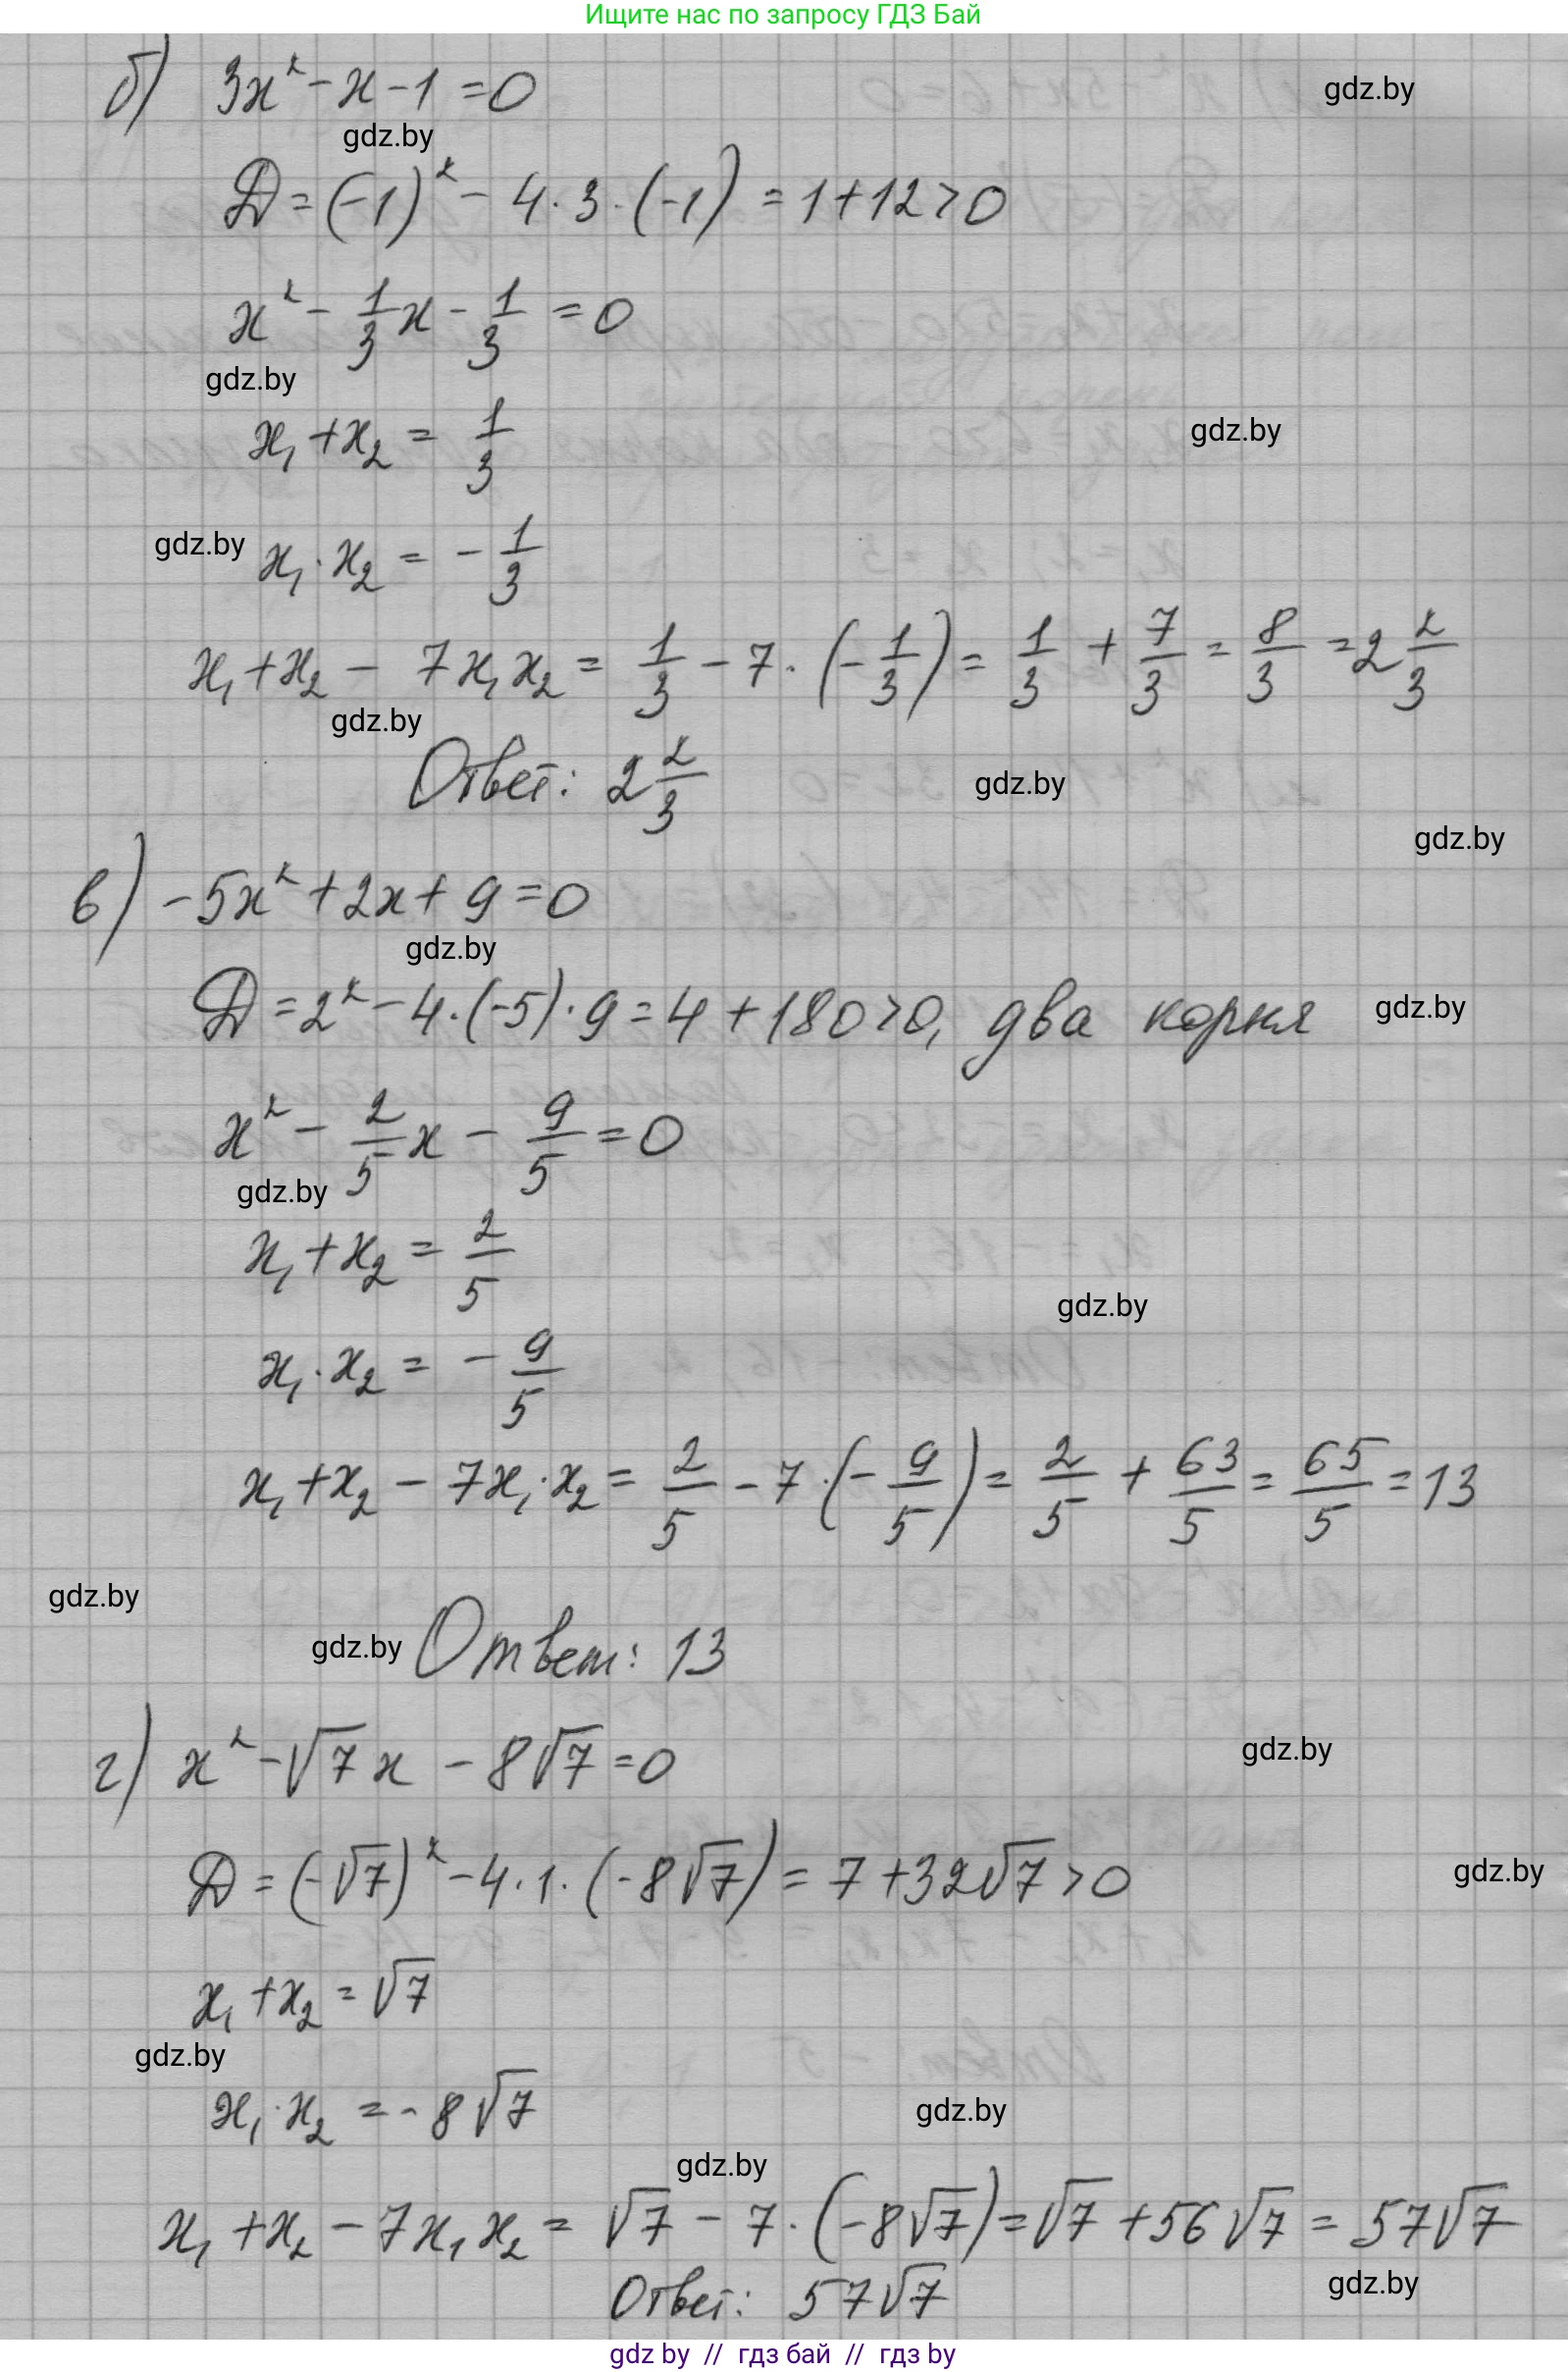 Ищите нас по запросу ГДЗ Бай
б) 3x² - x - 1 = 0
gdz.by
gdz.by
D = (-1)² - 4 · 3 · (-1) = 1 + 12 > 0
x² - 1/3 x - 1/3 = 0
gdz.by
x₁ + x₂ = 1/3
gdz.by
gdz.by
x₁ · x₂ = - 1/3
x₁ + x₂ - 7x₁x₂ = 1/3 - 7 · (- 1/3) = 1/3 + 7/3 = 8/3 = 2 2/3
gdz.by
Ответ: 2 2/3
gdz.by
gdz.by
в) -5x² + 2x + 9 = 0
gdz.by
D = 2² - 4 · (-5) · 9 = 4 + 180 > 0, два корня
gdz.by
x² - 2/5 x - 9/5 = 0
gdz.by
x₁ + x₂ = 2/5
gdz.by
x₁ · x₂ = - 9/5
x₁ + x₂ - 7x₁ · x₂ = 2/5 - 7 · (- 9/5) = 2/5 + 63/5 = 65/5 = 13
gdz.by
gdz.by
Ответ: 13
г) x² - √7 x - 8√7 = 0
gdz.by
D = (-√7)² - 4 · 1 · (-8√7) = 7 + 32√7 > 0
gdz.by
x₁ + x₂ = √7
gdz.by
x₁ · x₂ = - 8√7
gdz.by
gdz.by
x₁ + x₂ - 7x₁x₂ = √7 - 7 · (-8√7) = √7 + 56√7 = 57√7
gdz.by
Ответ: 57√7
gdz by // гдз бай // гдз by